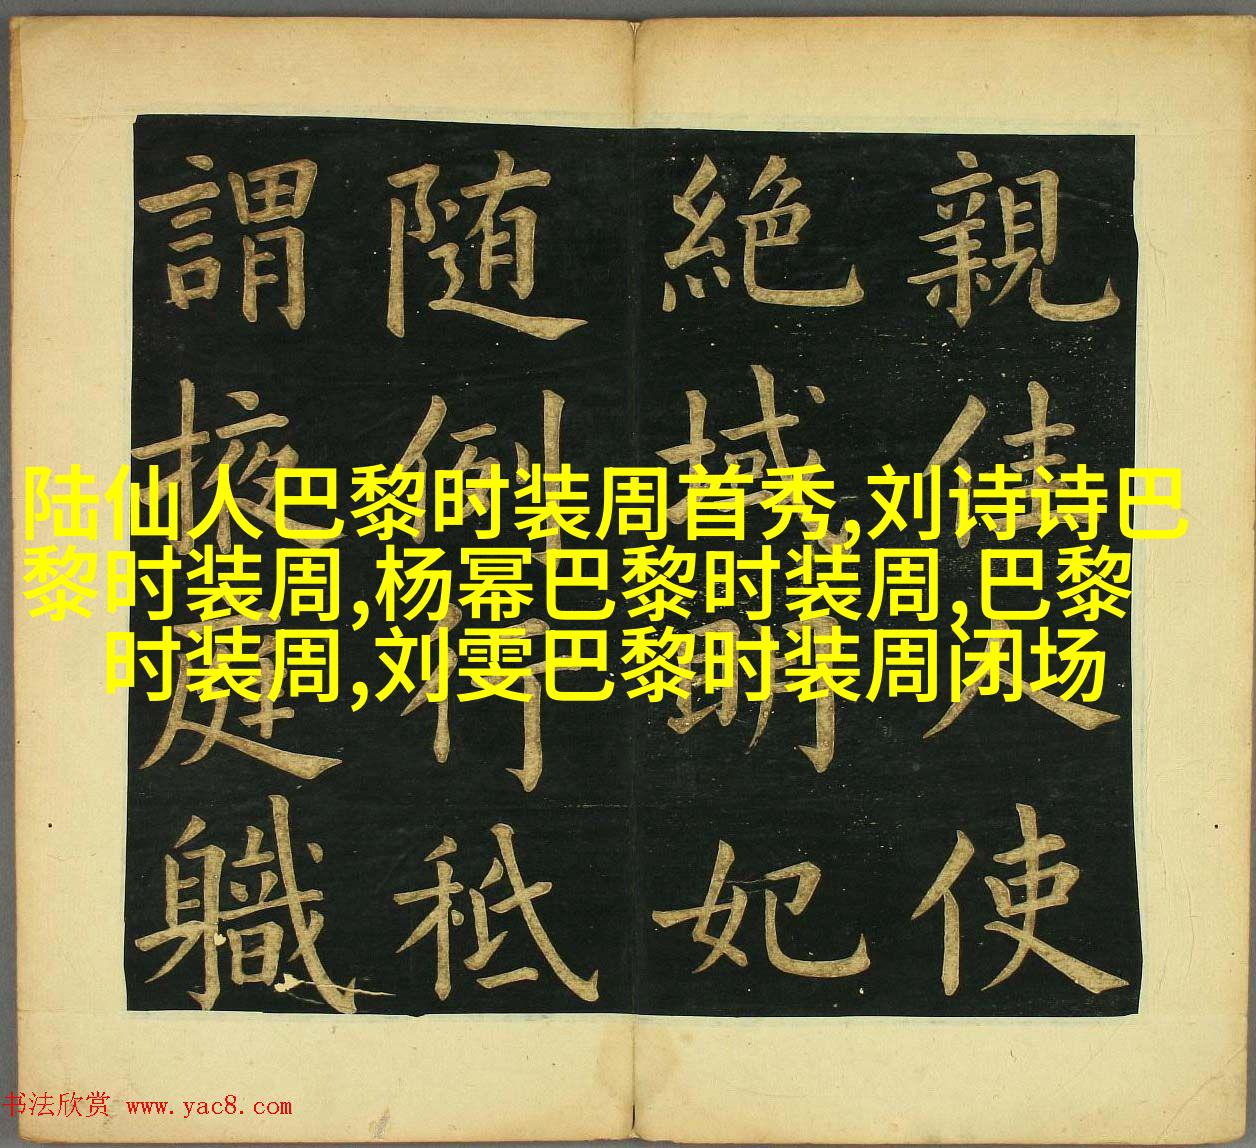 陆仙人巴黎时装周首秀,刘诗诗巴
黎时装周,杨幂巴黎时装周,巴黎
时装周,刘雯巴黎时装周闭场
親使
絶域明妃
随例行秪
謂掖庭職
书法欣赏 www.yac8.com